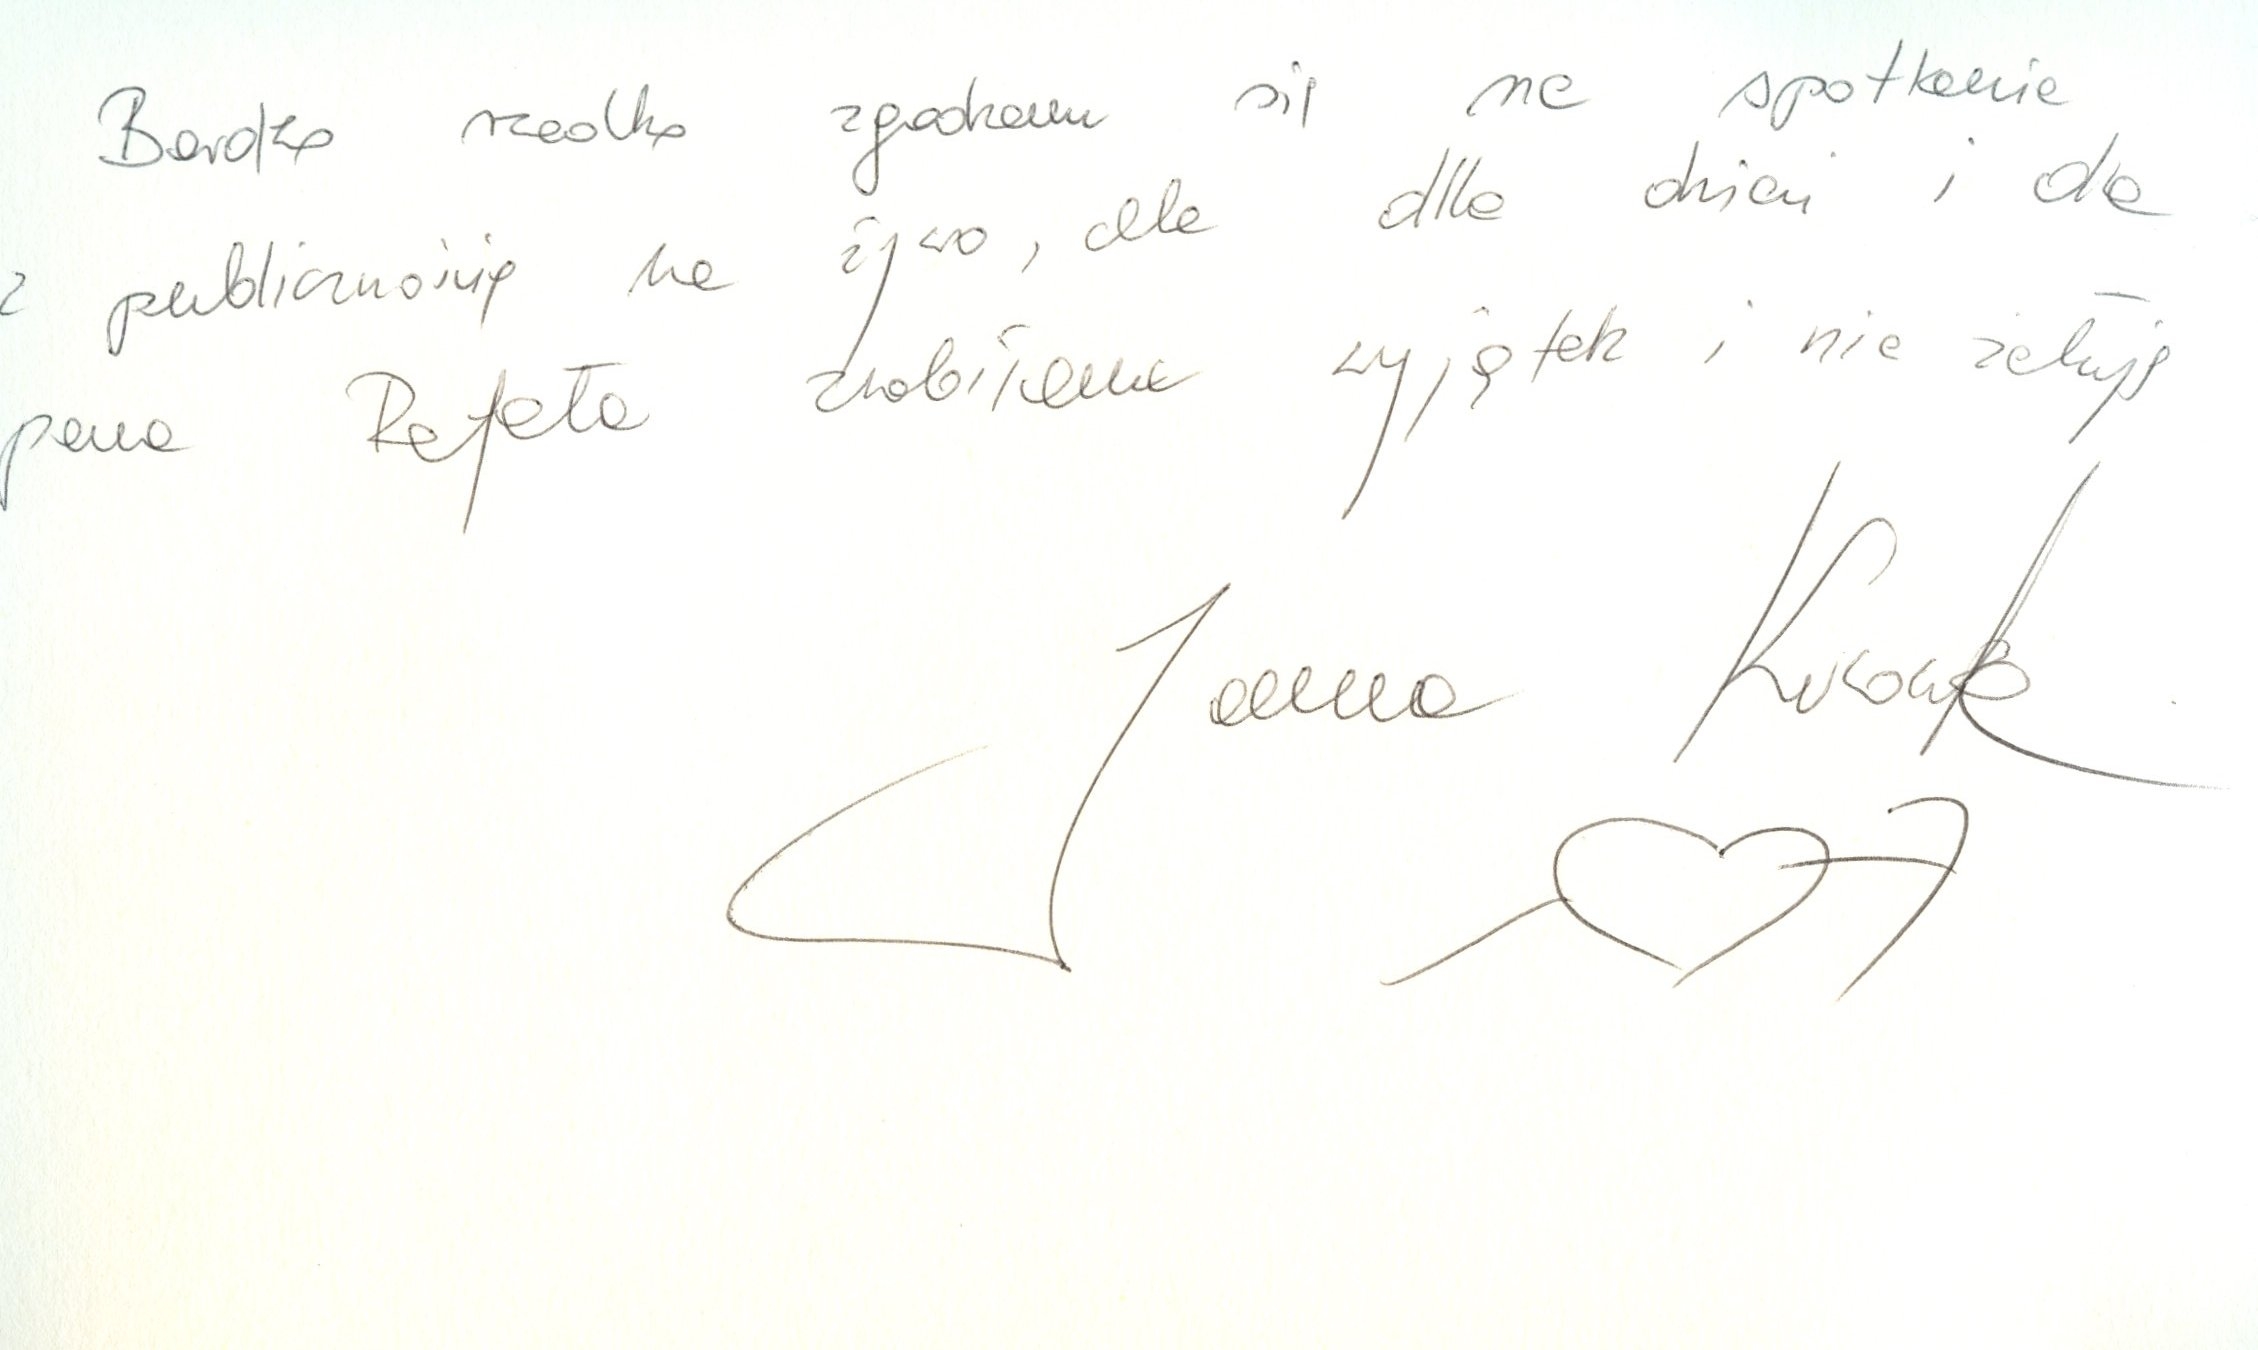 Bardzo rzadko zgadzam się na spotkanie
z publicznością na żywo, ale dla dzieci i dla
pana Rafała zrobiłam wyjątek i nie żałuję
Joanna